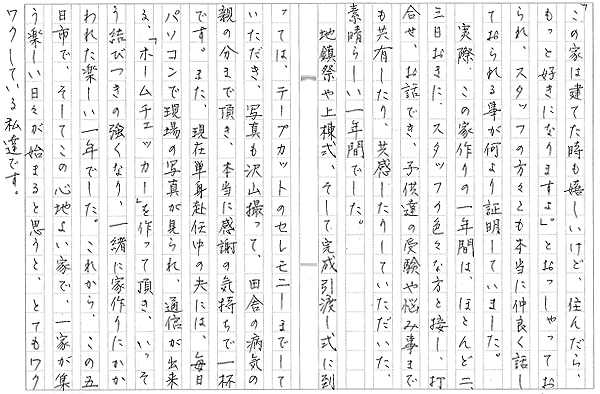 「この家は建てた時も嬉しいけど、住んだら、
もっと好きになりますよ。」とおっしゃってお
られ、スタッフの方々とも本当に仲良く話し
ておられる事が何より証明していました。
実際、この家作りの一年間は、ほとんど二、
三日おきに、スタッフの色々な方と接し、打
合せ、お話でき、子供達の受験や悩み事まで
も共有したり、共感したりしていただいた、
素晴らしい一年間でした。
地鎮祭や上棟式、そして完成引渡し式に到
っては、テープカットのセレモニーまでして
いただき、写真も沢山撮って、田舎の病気の
親の分まで頂き、本当に感謝の気持ちで一杯
です。また、現在単身赴任中の夫には、毎日
パソコンで現場の写真が見られ、通信が出来
る、「ホームチェッカー」を作って頂き、いっそ
う結びつきの強くなり、一緒に家作りにかか
われた楽しい一年でした。これから、この五
日市で、そしてこの心地よい家で、一家が集
う楽しい日々が始まると思うと、とてもワク
ワクしている私達です。